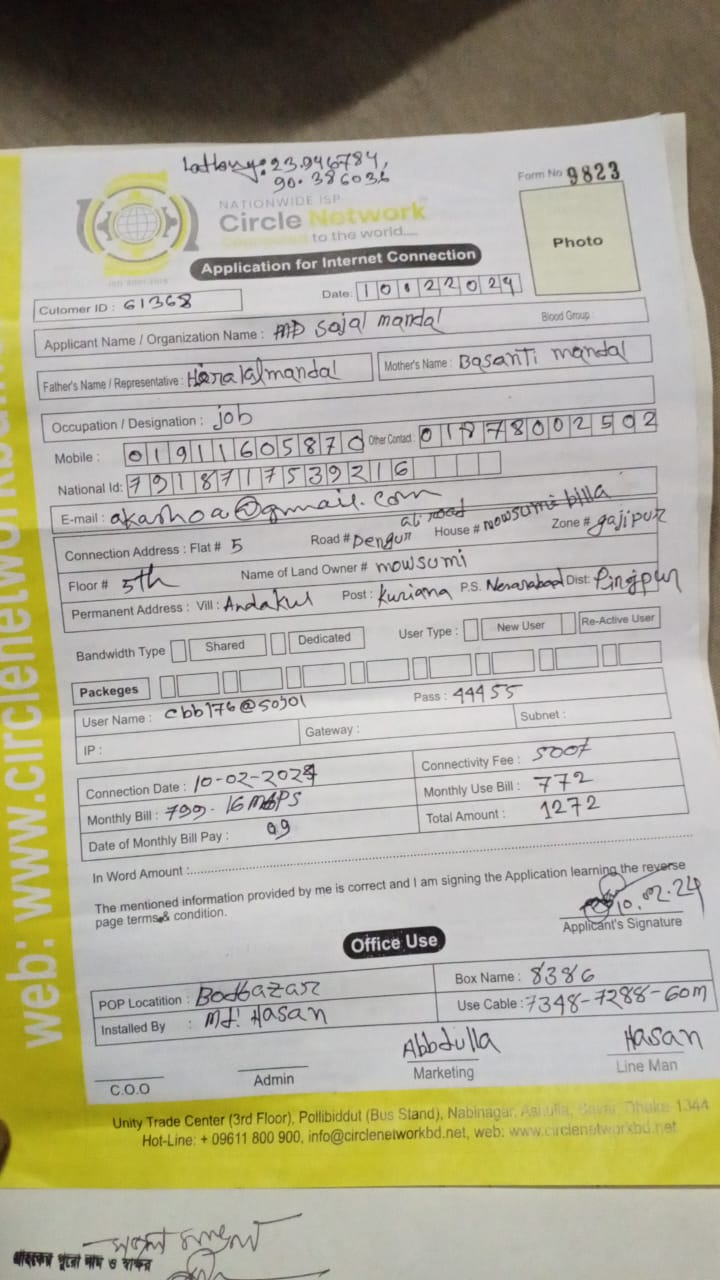 Latlong: 23.946784,
90.386036
Form No 9823
NATIONWIDE ISP
Circle Network
Connected to the world....
Photo
Application for Internet Connection
Date: 10022024
Cutomer ID : 61368
Applicant Name / Organization Name : MD Sojal mandal
Blood Group :
Father's Name / Representative : Hiralal mandal
Mother's Name : Basanti mandal
Occupation / Designation : job
Mobile : 01911605870 Other Contact : 01878002502
National Id: 7918717539216
E-mail : akashoa@gmail.com
Connection Address : Flat # 5 Road # Dengur ali road House # nowsumi billa Zone # gajipur
Floor # 5th Name of Land Owner # mowsumi
Permanent Address : Vill : Andakul Post : Kuriana P.S. Nesarabad Dist: Pirojpur
Bandwidth Type Shared Dedicated User Type : New User Re-Active User
Packeges
User Name : cbb176@sojol Pass : 44455
IP : Gateway : Subnet :
Connection Date : 10-02-2024 Connectivity Fee : 500/
Monthly Bill : 799 - 16 MBPS Monthly Use Bill : 772
Date of Monthly Bill Pay : 09 Total Amount : 1272
In Word Amount :
The mentioned information provided by me is correct and I am signing the Application learning the reverse
page terms & condition.
10.02.24
Applicant's Signature
Office Use
POP Locatition : Bodbazar Box Name : 8386
Installed By : Md: Hasan Use Cable : 7348-7288-60m
Abbdulla Hasan
C.O.O Admin Marketing Line Man
Unity Trade Center (3rd Floor), Pollibiddut (Bus Stand), Nabinagar, Ashulia, Savar, Dhaka-1344
Hot-Line: + 09611 800 900, info@circlenetworkbd.net, web: www.circlenetworkbd.net
web: www.circlenetworkbd.n